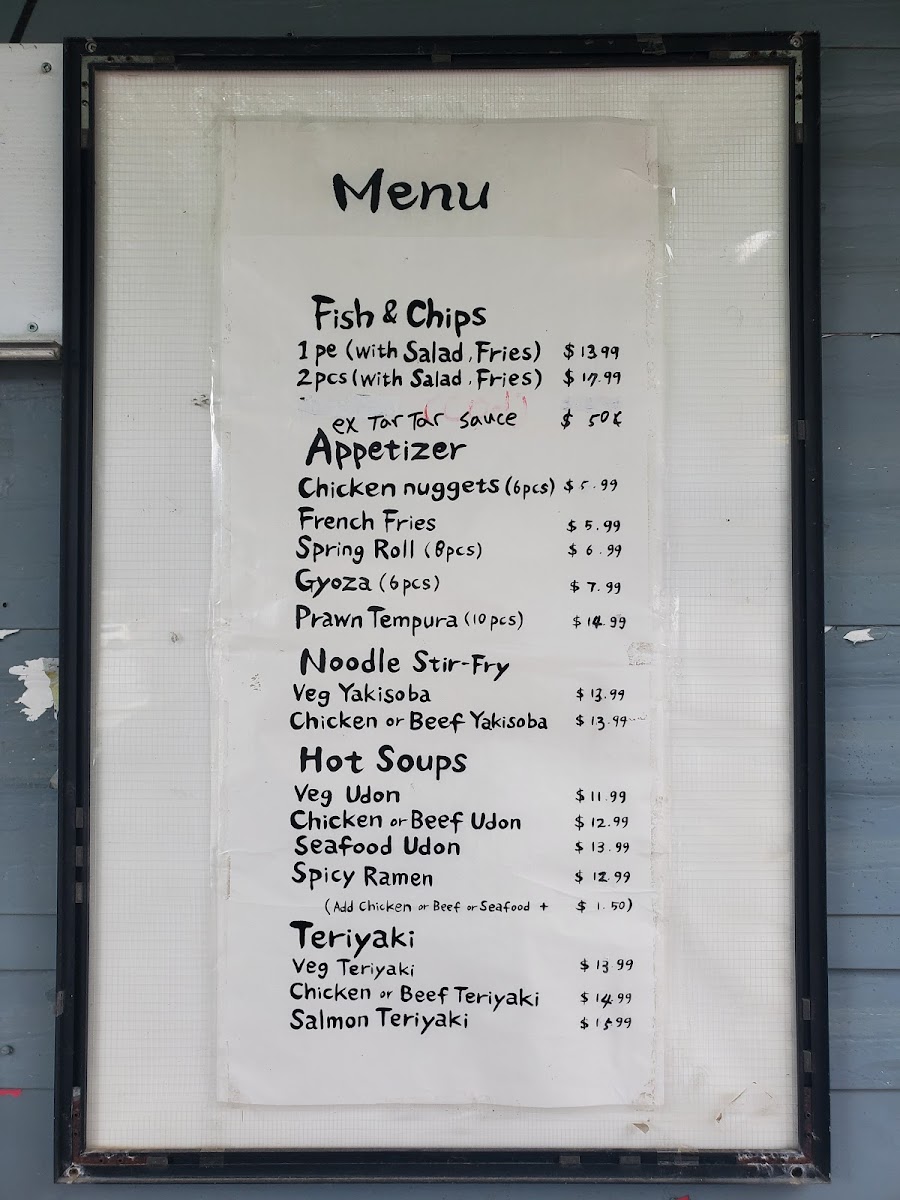 Menu
Fish & Chips
1 pc (with Salad, Fries) $13.99
2pcs (with Salad, Fries) $17.99
ex TarTar sauce $ 50¢
Appetizer
Chicken nuggets (6pcs) $5.99
French Fries $5.99
Spring Roll (8pcs) $6.99
Gyoza (6pcs) $7.99
Prawn Tempura (10pcs) $14.99
Noodle Stir-Fry
Veg Yakisoba $13.99
Chicken or Beef Yakisoba $13.99
Hot Soups
Veg Udon $11.99
Chicken or Beef Udon $12.99
Seafood Udon $13.99
Spicy Ramen $12.99
(Add Chicken or Beef or Seafood + $1.50)
Teriyaki
Veg Teriyaki $13.99
Chicken or Beef Teriyaki $14.99
Salmon Teriyaki $15.99